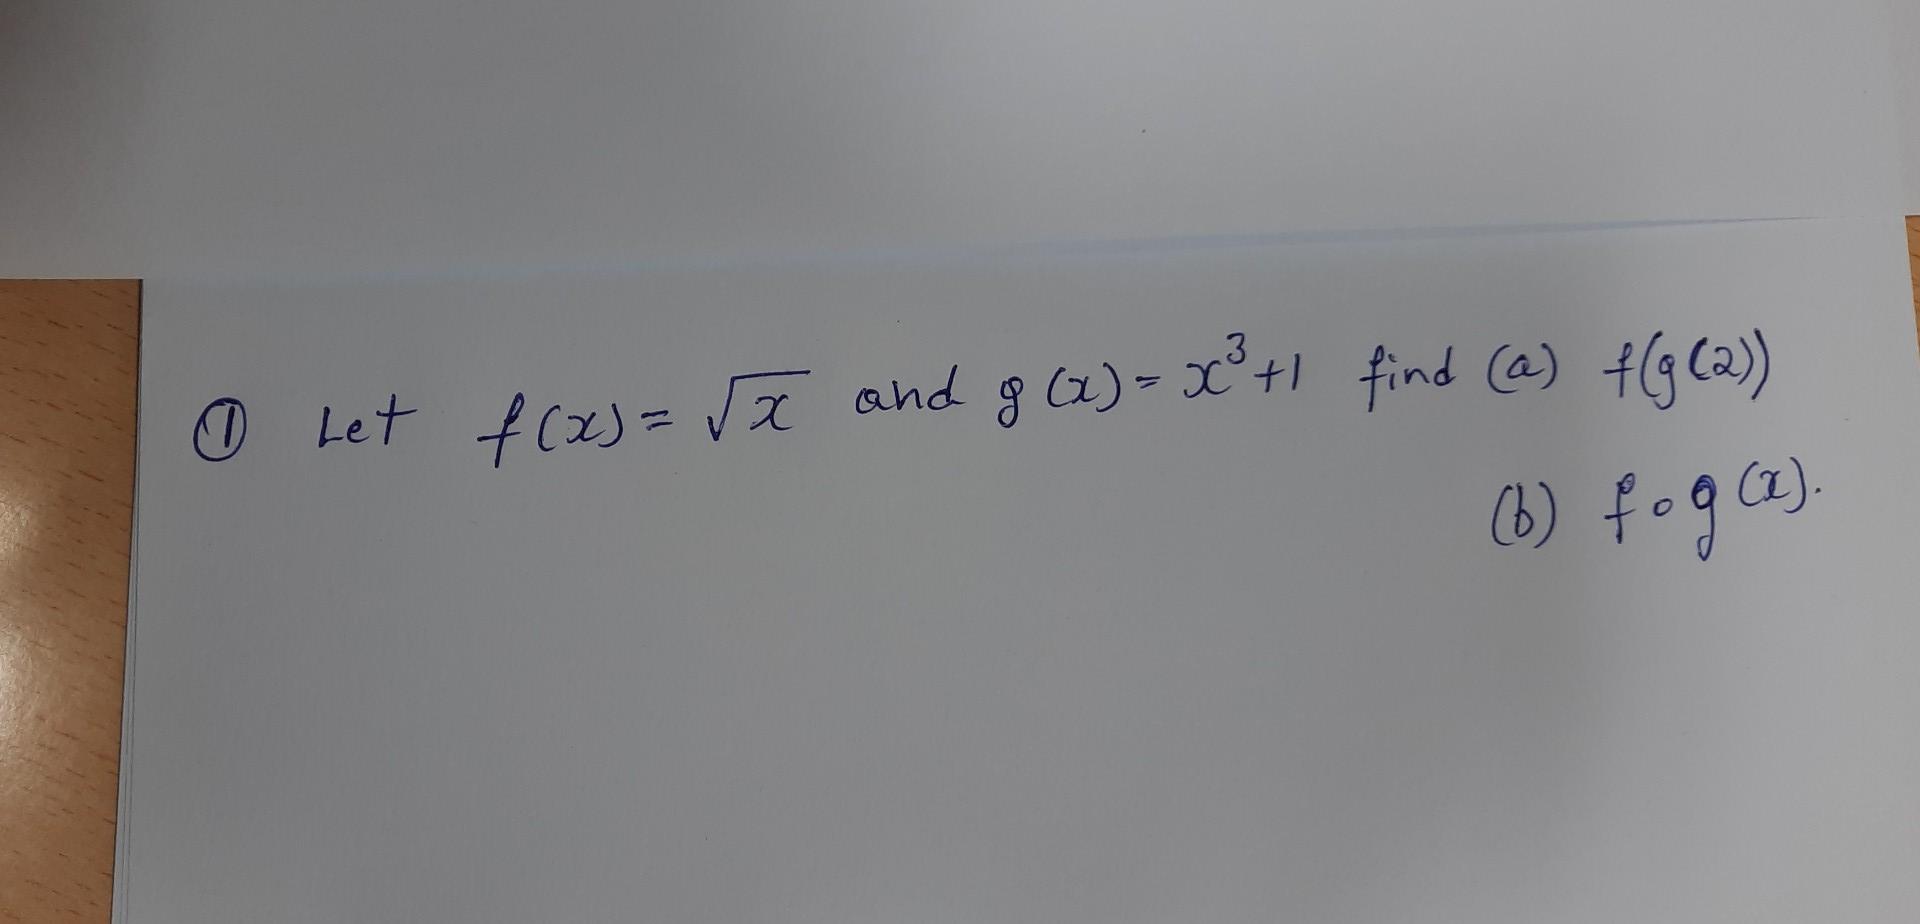 ① Let f(x) = √x and g(x) = x³+1 find (a) f(g(2))
(b) f∘g(x).